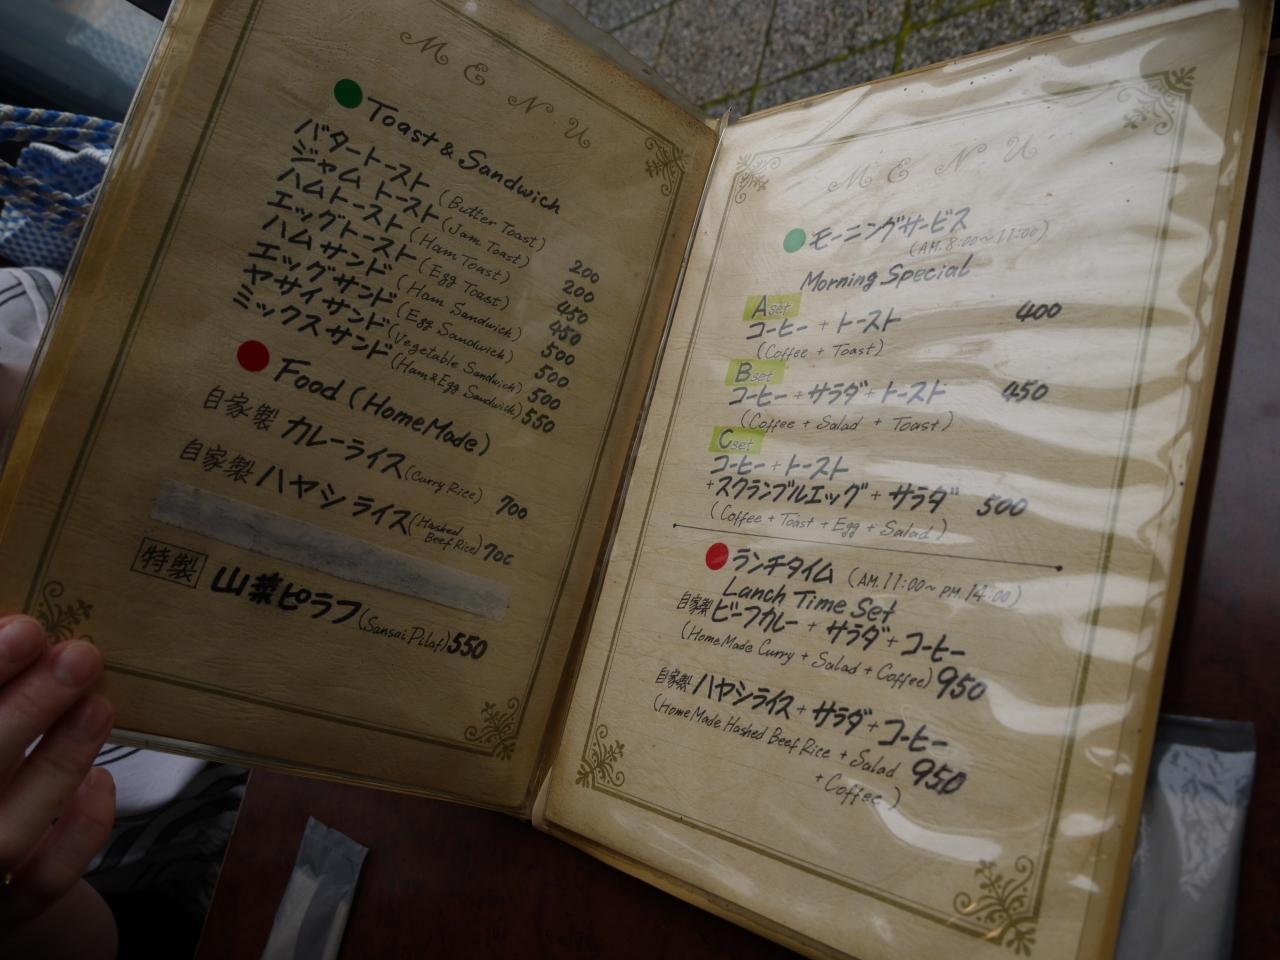 MENU
Toast & Sandwich
バタートースト (Butter Toast) 200
ジャムトースト (Jam Toast) 200
ハムトースト (Ham Toast) 450
エッグトースト (Egg Toast) 450
ハムサンド (Ham Sandwich) 500
エッグサンド (Egg Sandwich) 500
ヤサイサンド (Vegetable Sandwich) 500
ミックスサンド (Ham & Egg Sandwich) 550
Food (HomeMade)
自家製 カレーライス (Curry Rice) 700
自家製 ハヤシライス (Hashed Beef Rice) 700
特製 山菜ピラフ (Sansai Pilaf) 550
MENU
モーニングサービス
(AM. 8:00~11:00)
Morning Special
A set
コーヒー + トースト 400
(Coffee + Toast)
B set
コーヒー + サラダ + トースト 450
(Coffee + Salad + Toast)
C set
コーヒー + トースト
+ スクランブルエッグ + サラダ 500
(Coffee + Toast + Egg + Salad)
ランチタイム (AM. 11:00~ PM. 14:00)
Lanch Time Set
自家製 ビーフカレー + サラダ + コーヒー
(HomeMade Curry + Salad + Coffee) 950
自家製 ハヤシライス + サラダ + コーヒー
(HomeMade Hashed Beef Rice + Salad 950
+ Coffee)